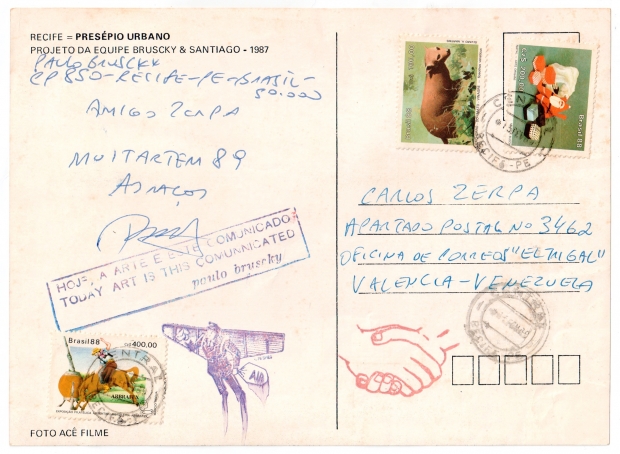 RECIFE = PRESÉPIO URBANO
PROJETO DA EQUIPE BRUSCKY & SANTIAGO - 1987
PAULO BRUSCKY
CP 850-RECIFE-PE-BRASIL-
50.000
AMIGO ZERPA
MUITARTEM 89
ABRAÇOS
HOJE, A ARTE É ESTE COMUNICADO
TODAY ART IS THIS COMUNICATED
paulo bruscky
Brasil 88 400,00
FOTO ACÊ FILME
Brasil 88
CARLOS ZERPA
APARTADO POSTAL No 3462
OFICINA DE CORREOS "EL TRIGAL"
VALENCIA-VENEZUELA